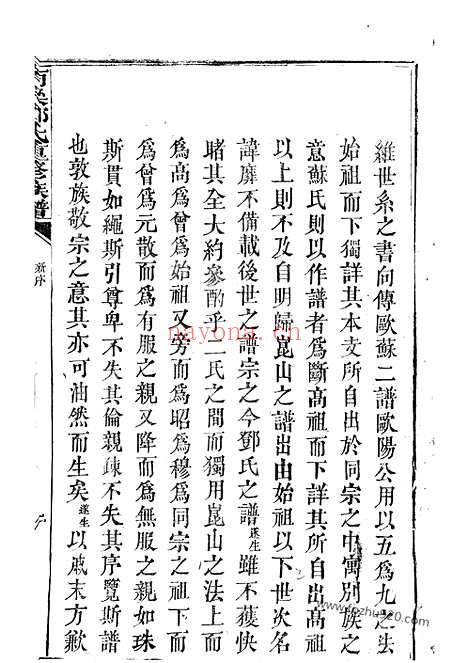 維世系之書向傳歐蘇二譜歐陽公用以五爲九之法
始祖而下獨詳其本支所自出於同宗之中寓別族之
意蘇氏則以作譜者爲斷高祖而下詳其所自出高祖
以上則不及自明歸崑山之譜出由始祖以下世次名
諱靡不備載後世之譜宗之今鄧氏之譜遂生雖不獲快
睹其全大約參酌乎二氏之間而獨用崑山之法上而
爲高爲曾爲始祖又旁而爲昭爲穆爲同宗之祖下而
爲曾爲元散而爲有服之親又降而爲無服之親如珠
斯貫如繩斯引尊卑不失其倫親疎不失其序覽斯譜
也敦族敬宗之意其亦可油然而生矣遂生以戚末方歉
氏重修族譜
新序
nayona.cn
www.fozhu920.com